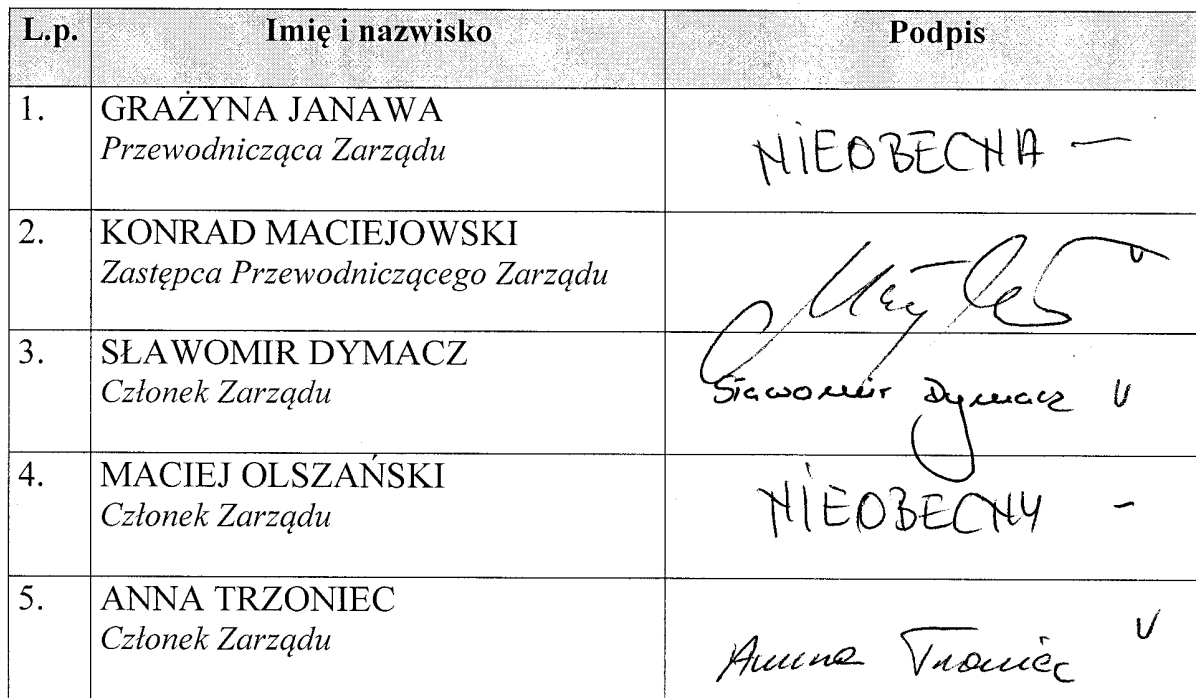 L.p. Imię i nazwisko Podpis
1. GRAŻYNA JANAWA
Przewodnicząca Zarządu
NIEOBECNA —
2. KONRAD MACIEJOWSKI
Zastępca Przewodniczącego Zarządu
v
3. SŁAWOMIR DYMACZ
Członek Zarządu
Sławomir Dymacz v
4. MACIEJ OLSZAŃSKI
Członek Zarządu
NIEOBECNY -
5. ANNA TRZONIEC
Członek Zarządu
Anna Trzoniec v